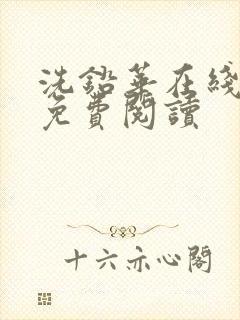 洗鉛華在綫
免費閱讀
十六亦心閣